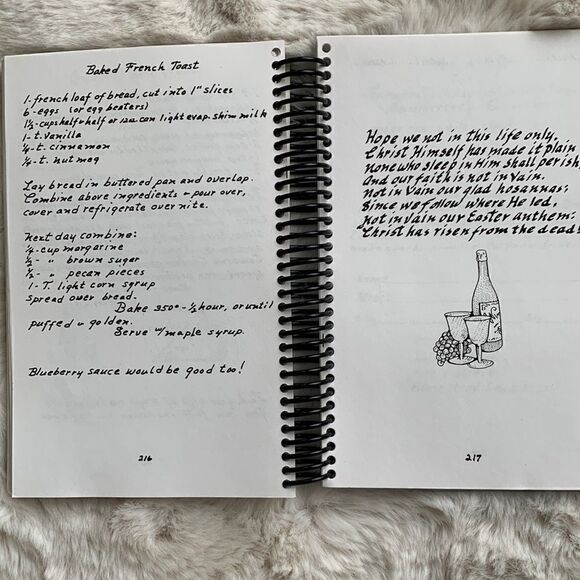 Baked French Toast
1-french loaf of bread, cut into 1" slices
6-eggs (or egg beaters)
1½-cups half & half or 12oz can light evap. skim milk
1-t. vanilla
¼-t. cinnamon
¼-t. nutmeg
Lay bread in buttered pan and overlap.
Combine above ingredients & pour over,
cover and refrigerate over nite.
Next day combine:
¼-cup margarine
½- " brown sugar
½- " pecan pieces
1-T. light corn syrup
Spread over bread.
Bake 350°-½ hour, or until
puffed & golden.
Serve w/maple syrup.
Blueberry sauce would be good too!
216
Hope we not in this life only,
Christ Himself has made it plain
none who sleep in Him shall perish,
And our faith is not in vain.
not in vain our glad hosannas;
Since we follow where He led,
not in vain our Easter anthem:
Christ has risen from the dead!
217